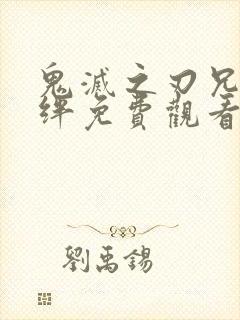 鬼滅之刃兄
絆免費觀看
劉禹錫